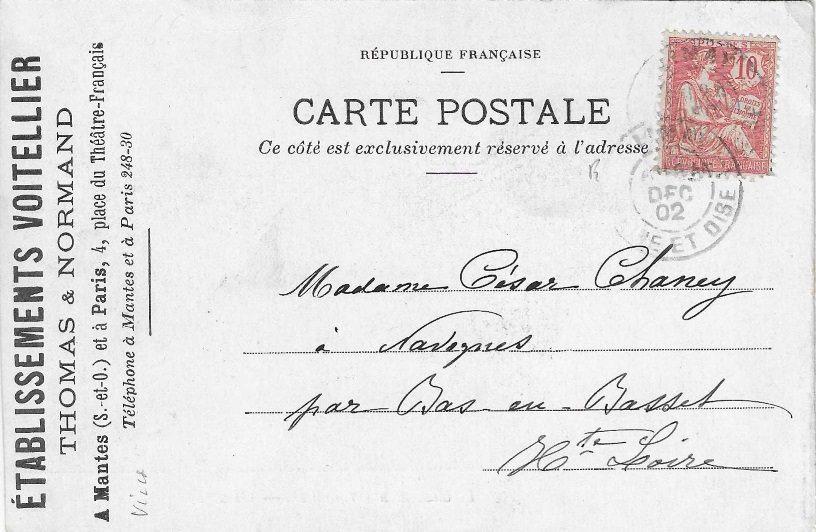 RÉPUBLIQUE FRANÇAISE
CARTE POSTALE
Ce côté est exclusivement réservé à l'adresse
10
DEC
02
ET OISE
Madame César Chaney
à Navognes
par Bas-en-Basset
Hte Loire
ÉTABLISSEMENTS VOITELLIER
THOMAS & NORMAND
A Mantes (S.-et-O.) et à Paris, 4, place du Théâtre-Français
Téléphone à Mantes et à Paris 248-30